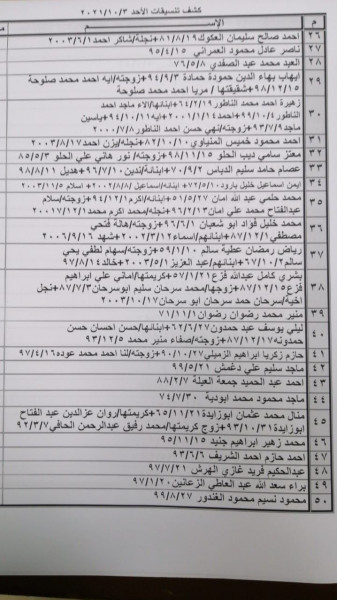 كشف تنسيقات الأحد ٢٠٢١/١٠/٣
م الإســـم
٢٦ احمد صالح سليمان العكوك ٨١/٨/١٩+نجلة/شاكر احمد ٢٠٠٣/٦/١
٢٧ ناصر عادل محمود العمراني ٩٥/٤/١٥
٢٨ العبد محمد عبد الصفدي ٧٦/٥/٨
٢٩ ايهاب بهاء الدين حمودة حمادة ٩٤/٩/٣+زوجته/ايه احمد محمد صلوحة
٩٨/١٢/١٥+شقيقتها / مريا احمد محمد صلوحة
٣٠ زهيرة احمد محمد الناطور ٦٤/٢/١٩+ابنانها/الاء ماجد احمد
الناطور ٩٩/١٠/٤+احمد ٢٠٠١/١/١٤+ايه ٩٤/١٠/١١+ياسين
ماجد ٩٣/٧/٩+زوجته/نهى حسن احمد الناطور ٢٠٠٠/٧/٨
٣١ احمد محمود خميس المنياوي ٨٢/١٠/١٠+نجلة/يزن احمد ٢٠٠٣/٨/١٧
٣٢ معتز سامي ديب الحلو ٩٨/١١/١٥+زوجته/ نور هاني علي الحلو ٨٥/٥/٣
٣٣ عصام حامد سليم الدباس ٧٠/٩/٢+ابنانة/ندين ٩٦/٧/١٠+هديل ٩٨/٨/١١
٣٤ ايمن اسماعيل خليل بارود ٧٢/٥/١٠+ابنانة/اسماعيل ٢٠٠٢/٨/٨+اسلام ٢٠٠٣/١١/٥
٣٥ محمد حلمي عبد الله امان ٥١/٥/٢٧+ابنانة/اكرم ٩٤/١٢/١+زوجته/سلام
عبدالفتاح محمد علي امان ٩٦/٢/١٣+نجلة/محمد اكرم محمد ٢٠٠١٧/١٢/١
٣٦ محمد خليل فؤاد ابو شعبان ٩٦/١/١+زوجته/هالة فتحي
مصطفي ٨٧/١٢/١+ابنانهم/اسماء ٢٠٠٢/٣/١+شهد ٢٠٠٦/٩/١٦
٣٧ رياض رمضان عطية سالم ٥٩/١/١٠+زوجته/سهام لطفي يحي
سالم ٦٧/١٠/٢+ابنانهم/عبد العزيز ٢٠٠٣/٥/١+خالد ٩٧/٨/١٤
٣٨ بشرى كامل عبدالله فزع ٥٧/١/٢١+كريمتها/اماني علي ابراهيم
فزع ٨٧/١٢/١٥+زوجها/محمد سرحان سليم ابوسرحان ٨٧/٧/٣+نجل
اخية/سرحان حمد سرحان ابو سرحان ٢٠٠٣/١٠/١٧
٣٩ منير محمد رضوان رضوان ٧١/١١/١
٤٠ ليلى يوسف عبد حمدون ٦٢/٦/٢٧+ابنانها/حسن احسان حسن
حمدونه ٨٧/١٢/١٧+زوجته/صفاء منير محمد ٩٣/١٢/٥
٤١ حازم زكريا ابراهيم الزميلي ٩٠/١٠/٧+زوجته/لنا احمد محمد عوده ٩٧/٤/١٦
٤٢ ماجد سليم علي دغمش ٩٩/٥/٢١
٤٣ احمد عبد الحميد جمعة العيلة ٨٨/٢/٧
٤٤ ماجد محمود محمد ابودية ٧٤/٧/٣٠
٤٥ منال محمد عثمان ابوزايدة ٦٥/١١/٢١+كريمتها/روان عزالدين عبد الفتاح
ابوزايدة ٩٣/١٠/٣١+زوج كريمتها/محمد رفيق عبدالرحمن الحافي ٩٢/٣/٧
٤٦ محمد زهير ابراهيم جنيد ٩٥/١١/١٥
٤٧ احمد حازم احمد الشريف ٩٣/٦/٦
٤٨ عبدالحكيم فريد غازي الهرش ٩٧/٧/٢١
٤٩ براء سعد الله عبد العاطي الزعانين ٩٧/١/٢٠
٥٠ محمود نسيم محمود الغندور ٩٩/٨/٢٧